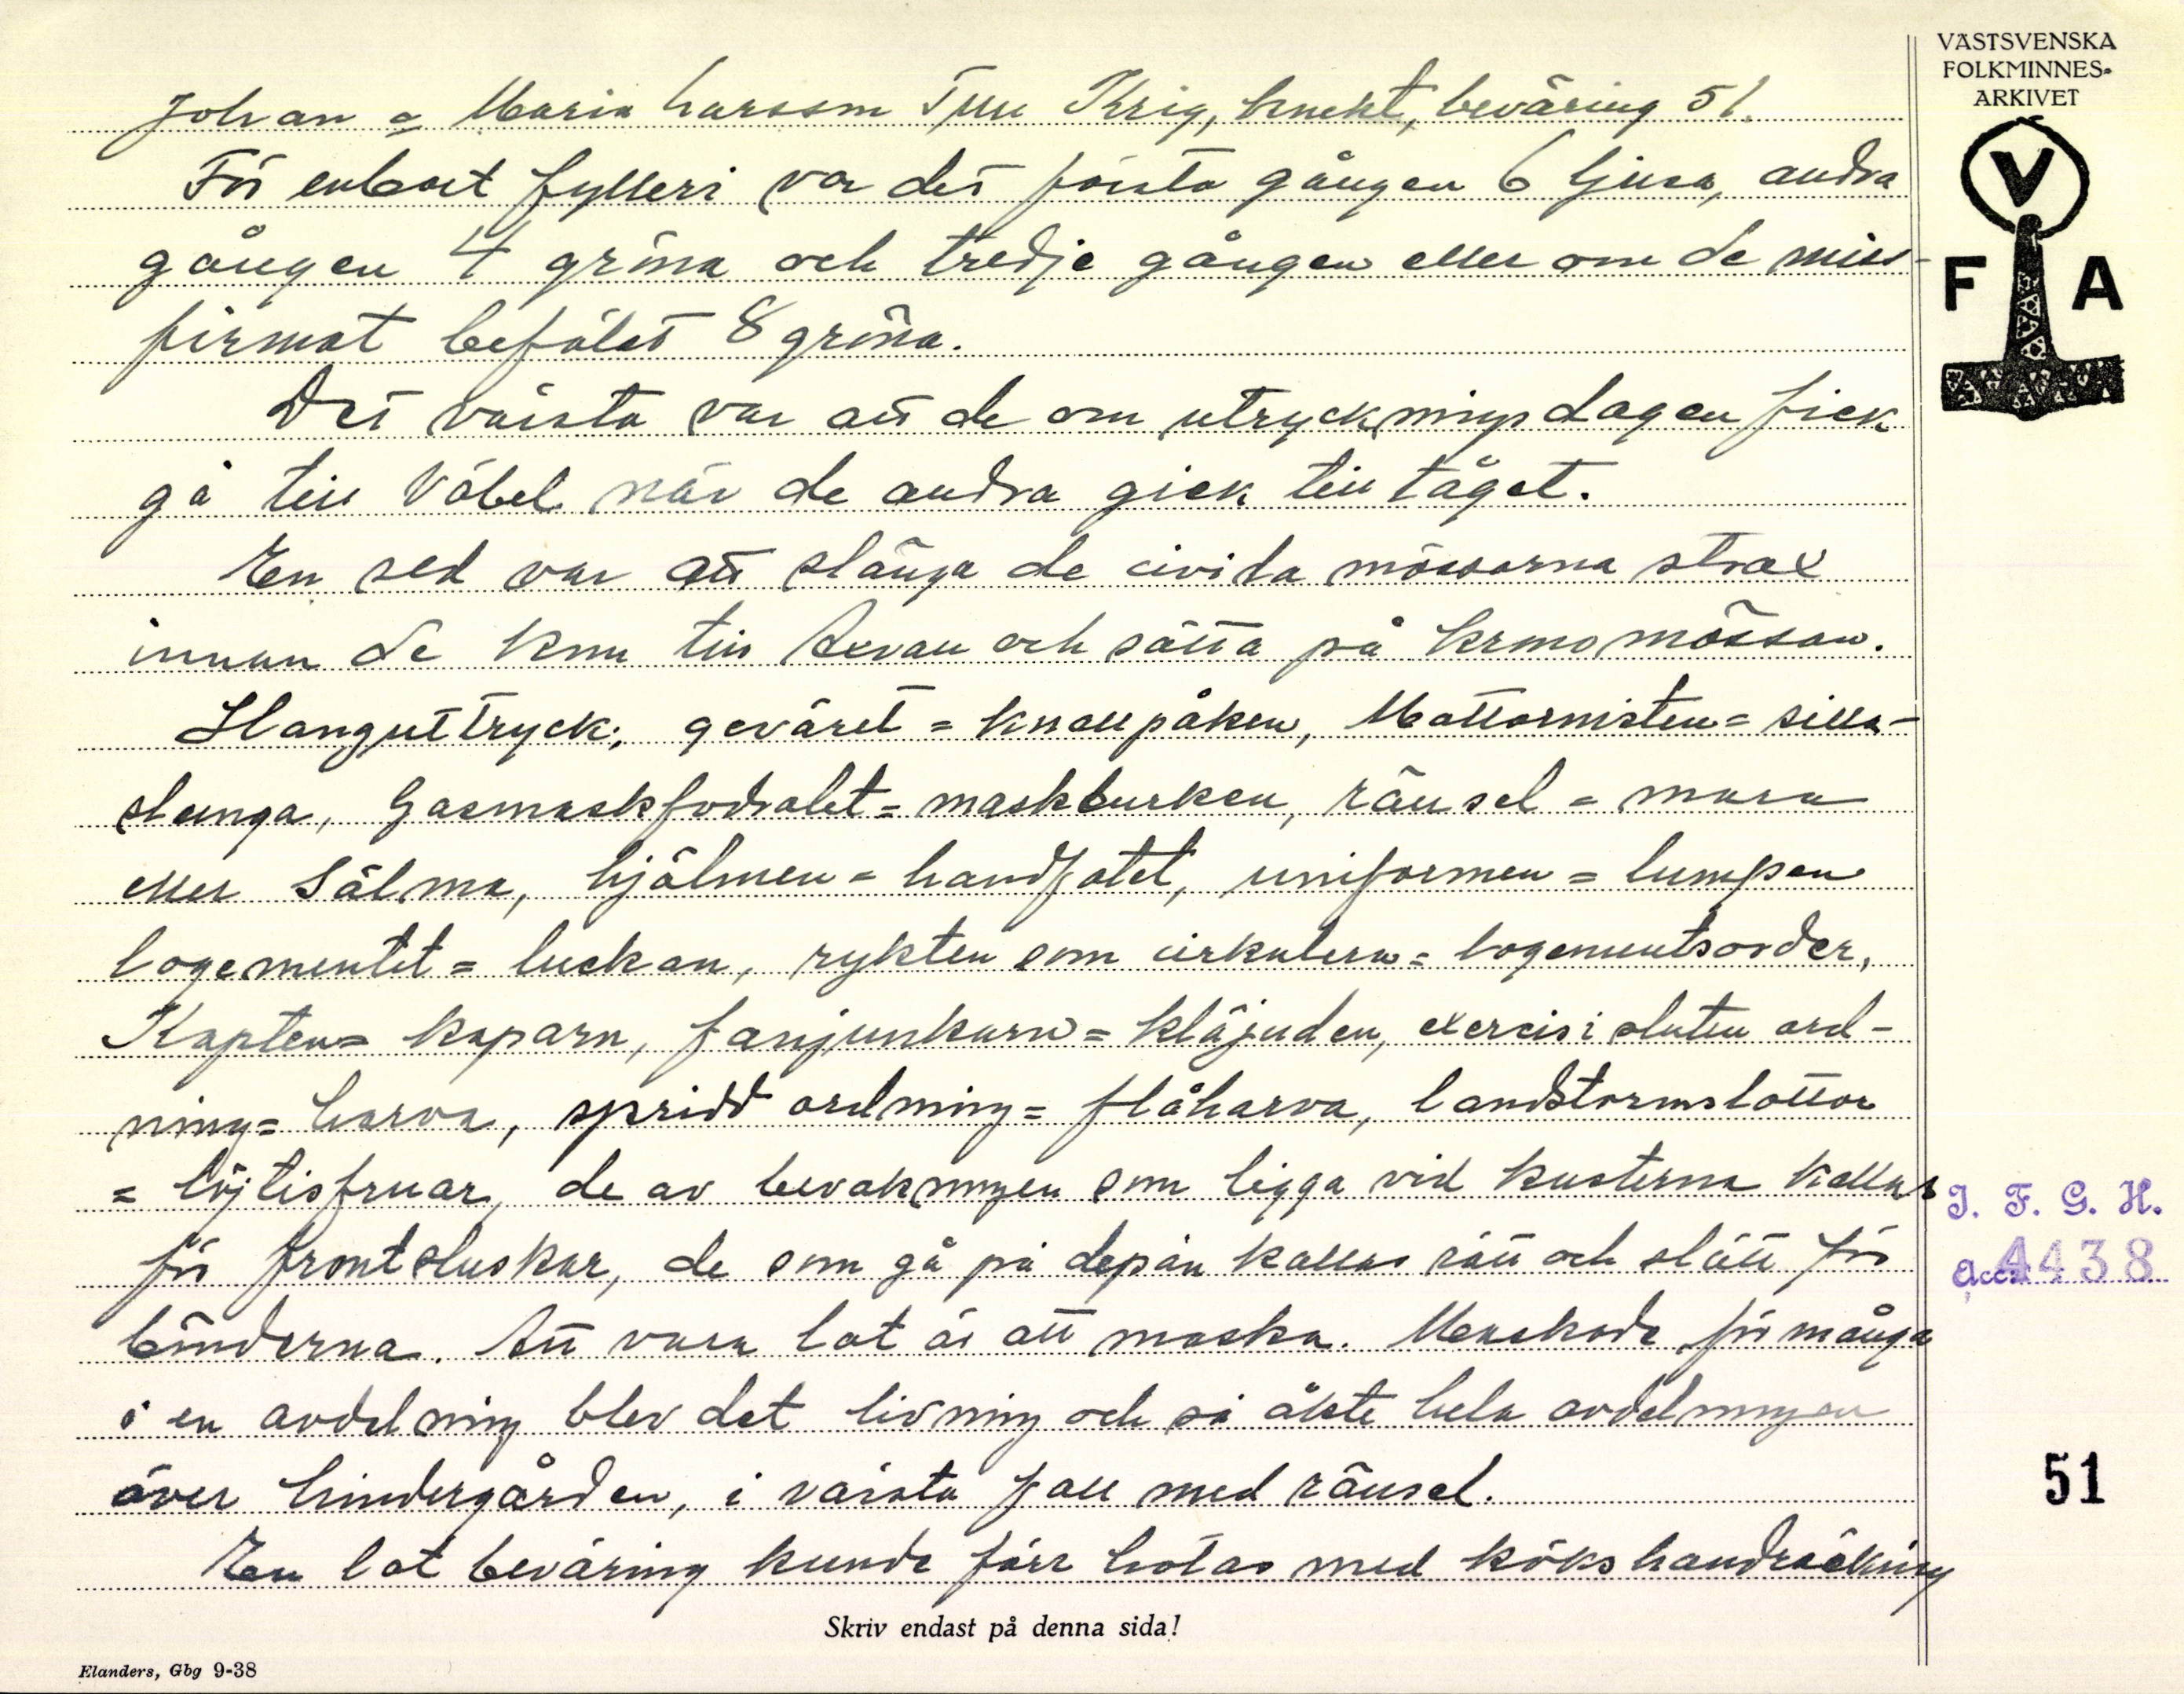 VÄSTSVENSKA
FOLKMINNES-
ARKIVET
V
F A
Johan o Maria Larsson Krig, knekt, beväring 51.
För enbart fylleri var det första gången 6 ljusa, andra
gången 4 gröna och tredje gången eller om de miss-
firmat befälet 8 gröna.
Det värsta var att de om utryckningsdagen fick
gå till Väbel när de andra gick till tåget.
En sed var att slänga de civila mössorna strax
innan de kom till och sätta på kronomössan.
Slanguttryck, geväret = knallpåken, Mattornisten = silla-
slunga, Gasmaskfodralet = maskburken, ränsel = mara
eller Sälma, hjälmen = handfatet, uniformen = lumpen
logementet = luckan, rykten som cirkulera = logementsorder,
Kapten = kaparn, fanjunkarn = kläjuden, exercis i sluten ord-
ning = harva, spridd ordning = flåharva, landstormslottor
= löjtisfruar, de av bevakningen som ligga vid kusterna kallas
för frontsluskar, de som gå på depån kallas rätt och slätt för
bönderna. Att vara lat är att maska. Maskade för många
i en avdelning blev det livning och så åkte hela avdelningen
över hindergården, i värsta fall med ränsel.
En lat beväring kunde förr hotas med kökshandräckning
I. F. G. H.
Acc. 4438
51
Skriv endast på denna sida!
Elanders, Gbg 9-38